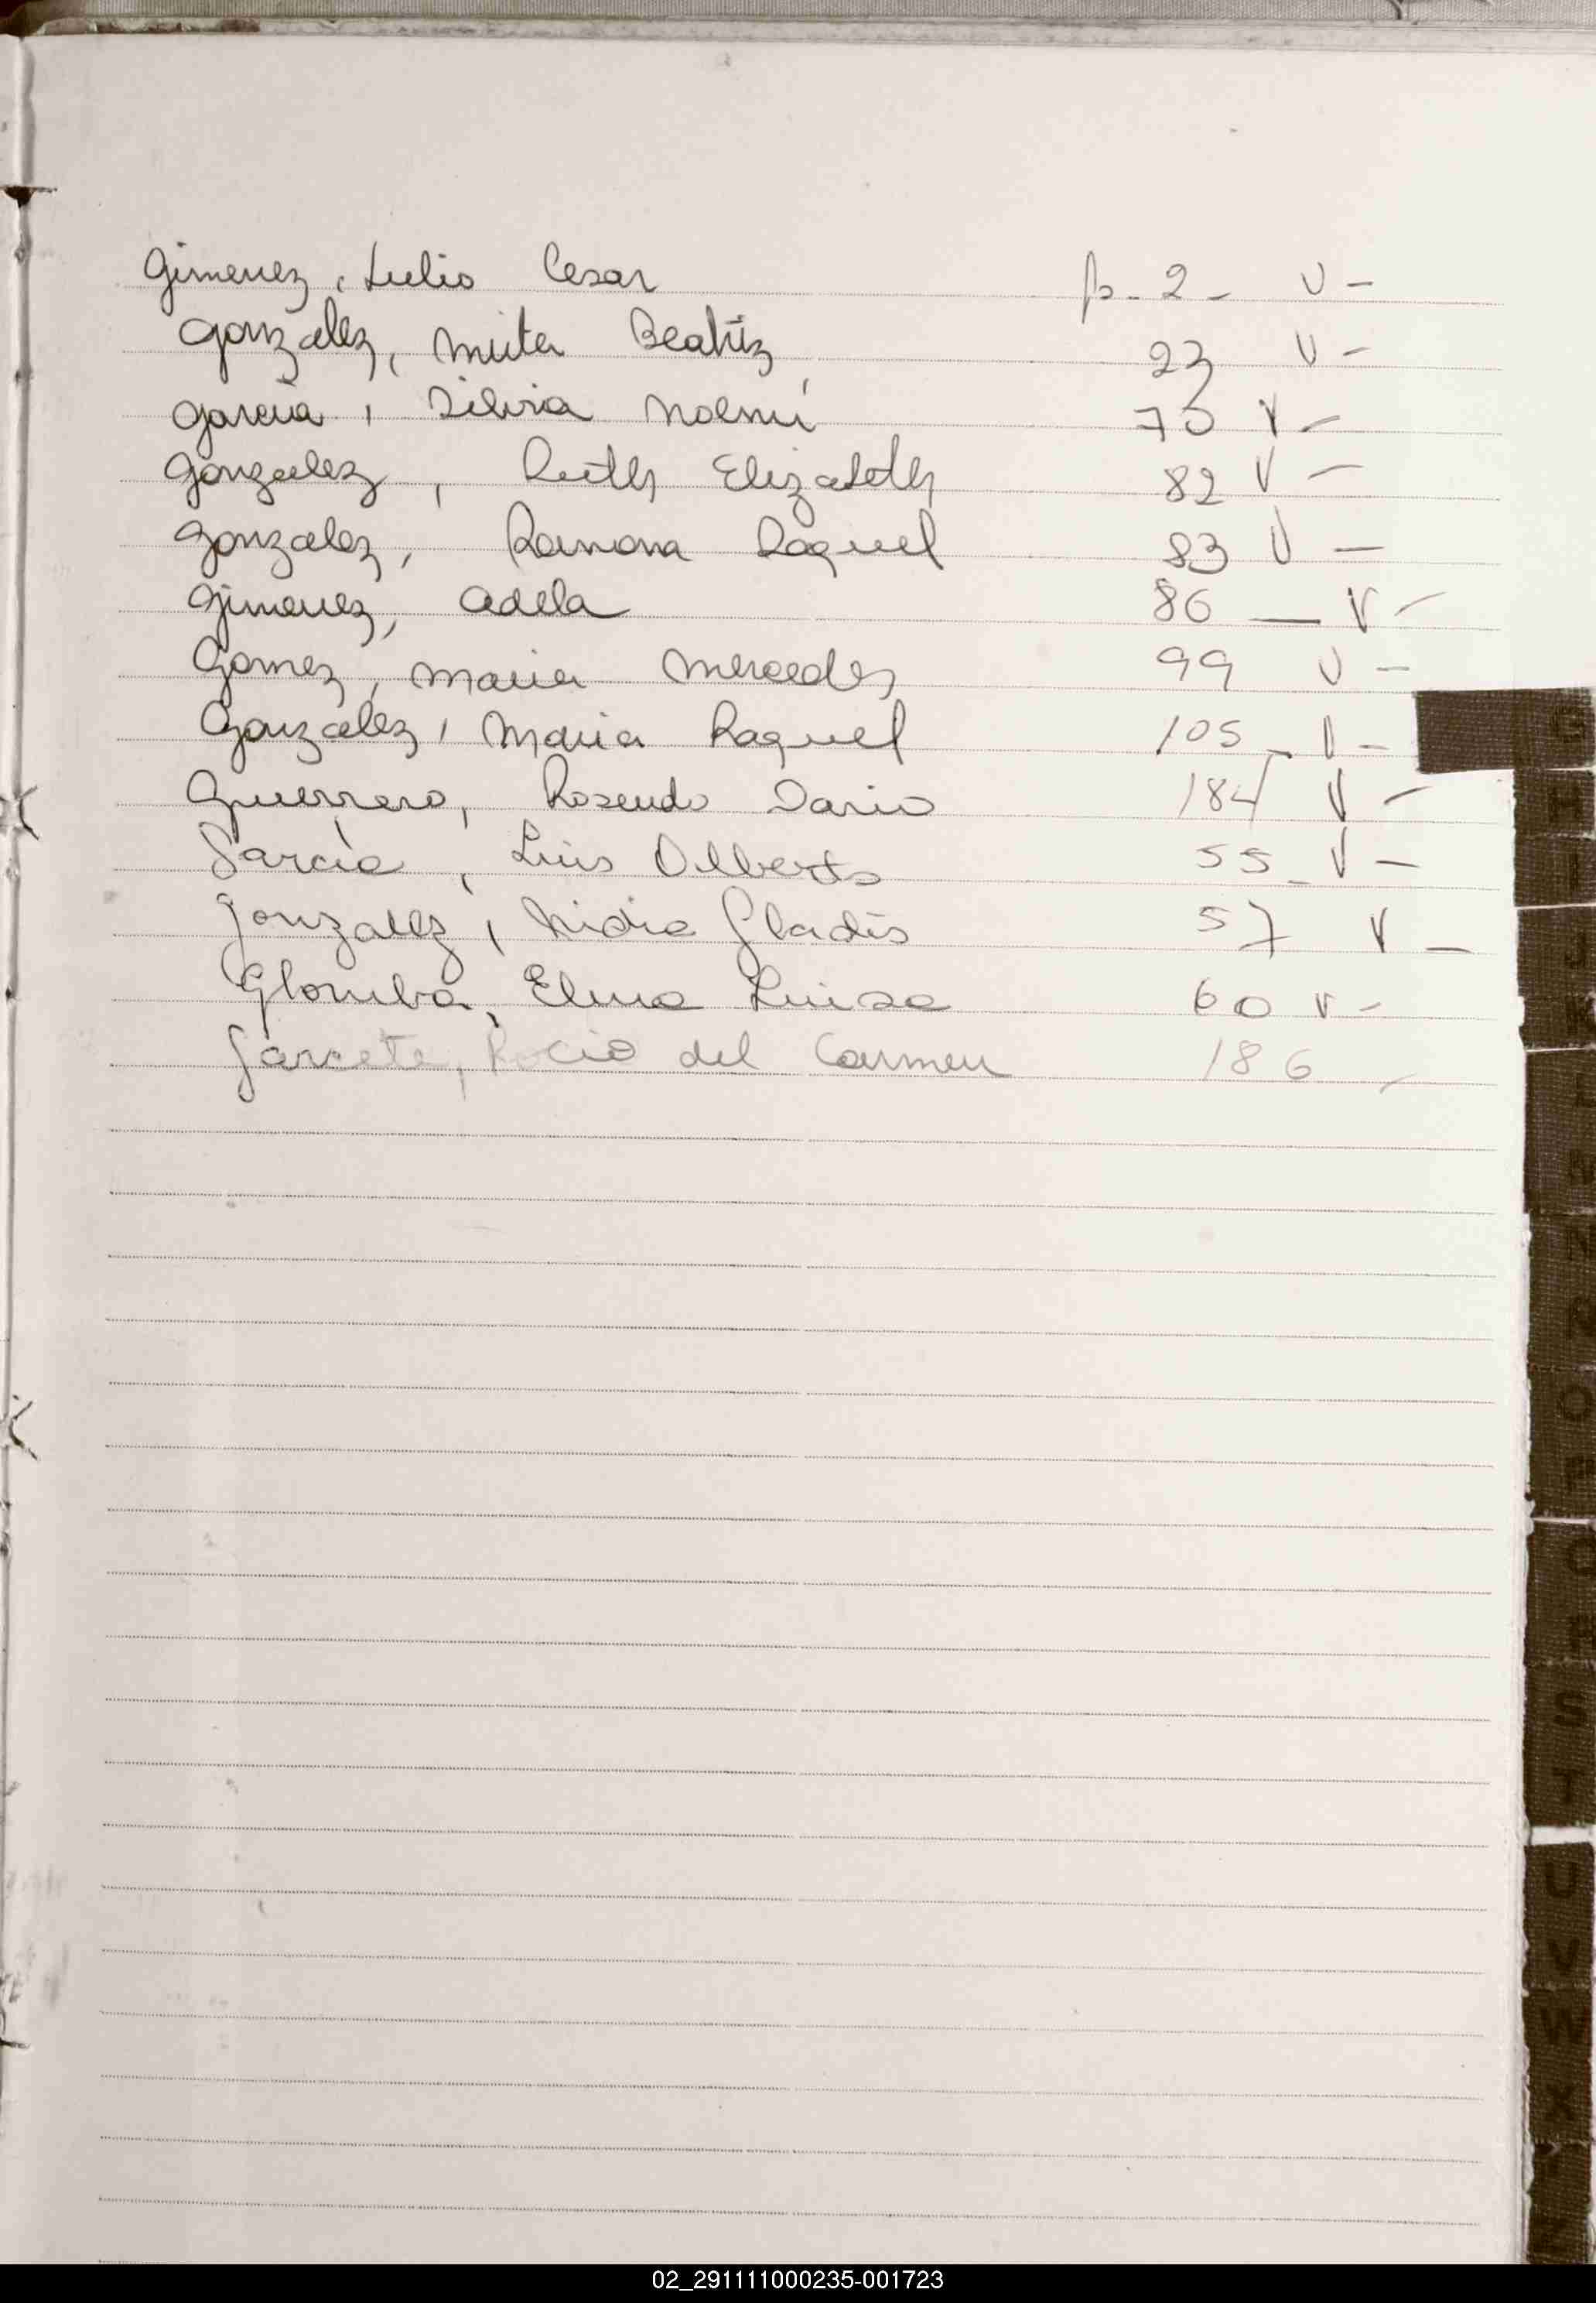 Gimenez, Julio Cesar p. 2 - V -
Gonzalez, Mirta Beatriz 23 V -
Garcia, Silvia Noemí 75 V -
Gonzalez, Ruth Elizabeth 82 V -
Gonzalez, Ramona Raquel 83 V -
Gimenez, Adela 86 — V -
Gomez, Maria Mercedes 99 V -
Gonzalez, Maria Raquel 105 - V -
Guerrero, Rosendo Dario 184 V -
Garcia, Luis Dilberto 55 - V -
Gonzalez, Nidia Gladis 57 V -
Glomba, Elma Luisa 60 V -
Garcete, Rocio del Carmen 186 -
G
H
I
J
K
O
P
Q
S
T
U
V
W
X
02_291111000235-001723